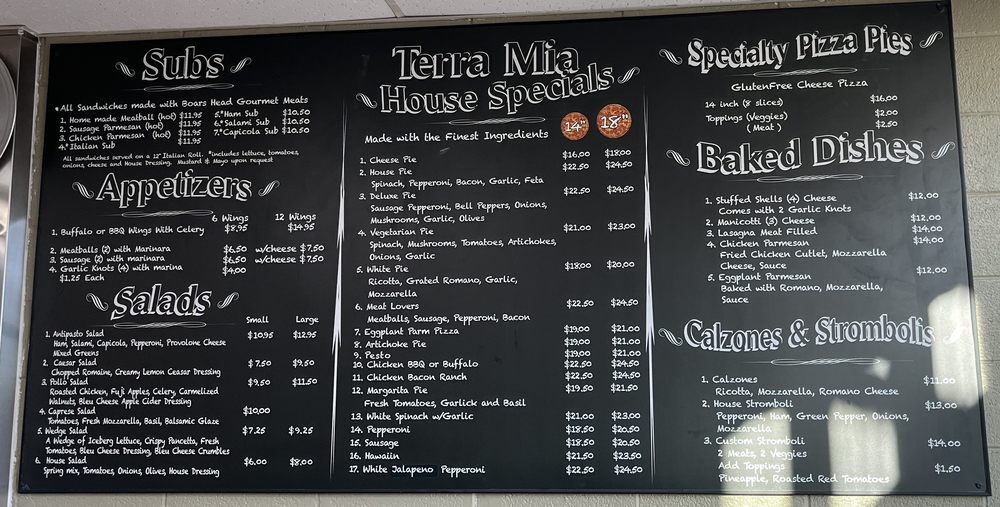 Subs
*All Sandwiches made with Boars Head Gourmet Meats
1. Home made Meatball (hot) $11.95
2. Sausage Parmesan (hot) $11.95
3. Chicken Parmesan (hot) $11.95
4.* Italian Sub $11.95
5.* Ham Sub $10.50
6.* Salami Sub $10.50
7.* Capicola Sub $10.50
All sandwiches served on a 12" Italian Roll. *Includes lettuce, tomatoes,
onions, cheese and House Dressing. Mustard & Mayo upon request
Appetizers
6 Wings 12 Wings
1. Buffalo or BBQ Wings With Celery $8.95 $14.95
2. Meatballs (2) with Marinara $6.50 w/cheese $7.50
3. Sausage (2) with marinara $6.50 w/cheese $7.50
4. Garlic Knots (4) with marina $4.00
$1.25 Each
Salads
Small Large
1. Antipasto Salad $10.95 $12.95
Ham, Salami, Capicola, Pepperoni, Provolone Cheese
Mixed Greens
2. Caesar Salad $7.50 $9.50
Chopped Romaine, Creamy Lemon Ceasar Dressing
3. Pollo Salad $9.50 $11.50
Roasted Chicken, Fuji Apples, Celery, Carmelized
Walnuts, Bleu Cheese Apple Cider Dressing
4. Caprese Salad $10.00
Tomatoes, Fresh Mozzarella, Basil, Balsamic Glaze
5. Wedge Salad $7.25 $9.25
A Wedge of Iceberg Lettuce, Crispy Pancetta, Fresh
Tomatoes, Bleu Cheese Dressing, Bleu Cheese Crumbles
6. House Salad $6.00 $8.00
Spring mix, Tomatoes, Onions, Olives, House Dressing
Terra Mia
House Specials
Made with the Finest Ingredients 14" 18"
1. Cheese Pie $16.00 $18.00
2. House Pie $22.50 $24.50
Spinach, Pepperoni, Bacon, Garlic, Feta
3. Deluxe Pie $22.50 $24.50
Sausage Pepperoni, Bell Peppers, Onions,
Mushrooms, Garlic, Olives
4. Vegetarian Pie $21.00 $23.00
Spinach, Mushrooms, Tomatoes, Artichokes,
Onions, Garlic
5. White Pie $18.00 $20.00
Ricotta, Grated Romano, Garlic,
Mozzarella
6. Meat Lovers $22.50 $24.50
Meatballs, Sausage, Pepperoni, Bacon
7. Eggplant Parm Pizza $19.00 $21.00
8. Artichoke Pie $19.00 $21.00
9. Pesto $19.00 $21.00
10. Chicken BBQ or Buffalo $22.50 $24.50
11. Chicken Bacon Ranch $22.50 $24.50
12. Margarita Pie $19.50 $21.50
Fresh Tomatoes, Garlick and Basil
13. White Spinach w/Garlic $21.00 $23.00
14. Pepperoni $18.50 $20.50
15. Sausage $18.50 $20.50
16. Hawaiin $21.50 $23.50
17. White Jalapeno Pepperoni $22.50 $24.50
Specialty Pizza Pies
GlutenFree Cheese Pizza
14 inch (8 slices) $16.00
Toppings (Veggies) $2.00
( Meat ) $2.50
Baked Dishes
1. Stuffed Shells (4) Cheese $12.00
Comes with 2 Garlic Knots
2. Manicotti (3) Cheese $12.00
3. Lasagna Meat Filled $14.00
4. Chicken Parmesan $14.00
Fried Chicken Cutlet, Mozzarella
Cheese, Sauce
5. Eggplant Parmesan $12.00
Baked with Romano, Mozzarella,
Sauce
Calzones & Strombolis
1. Calzones $11.00
Ricotta, Mozzarella, Romano Cheese
2. House Stromboli $13.00
Pepperoni, Ham, Green Pepper, Onions,
Mozzarella
3. Custom Stromboli $14.00
2 Meats, 2 Veggies
Add Toppings $1.50
Pineapple, Roasted Red Tomatoes